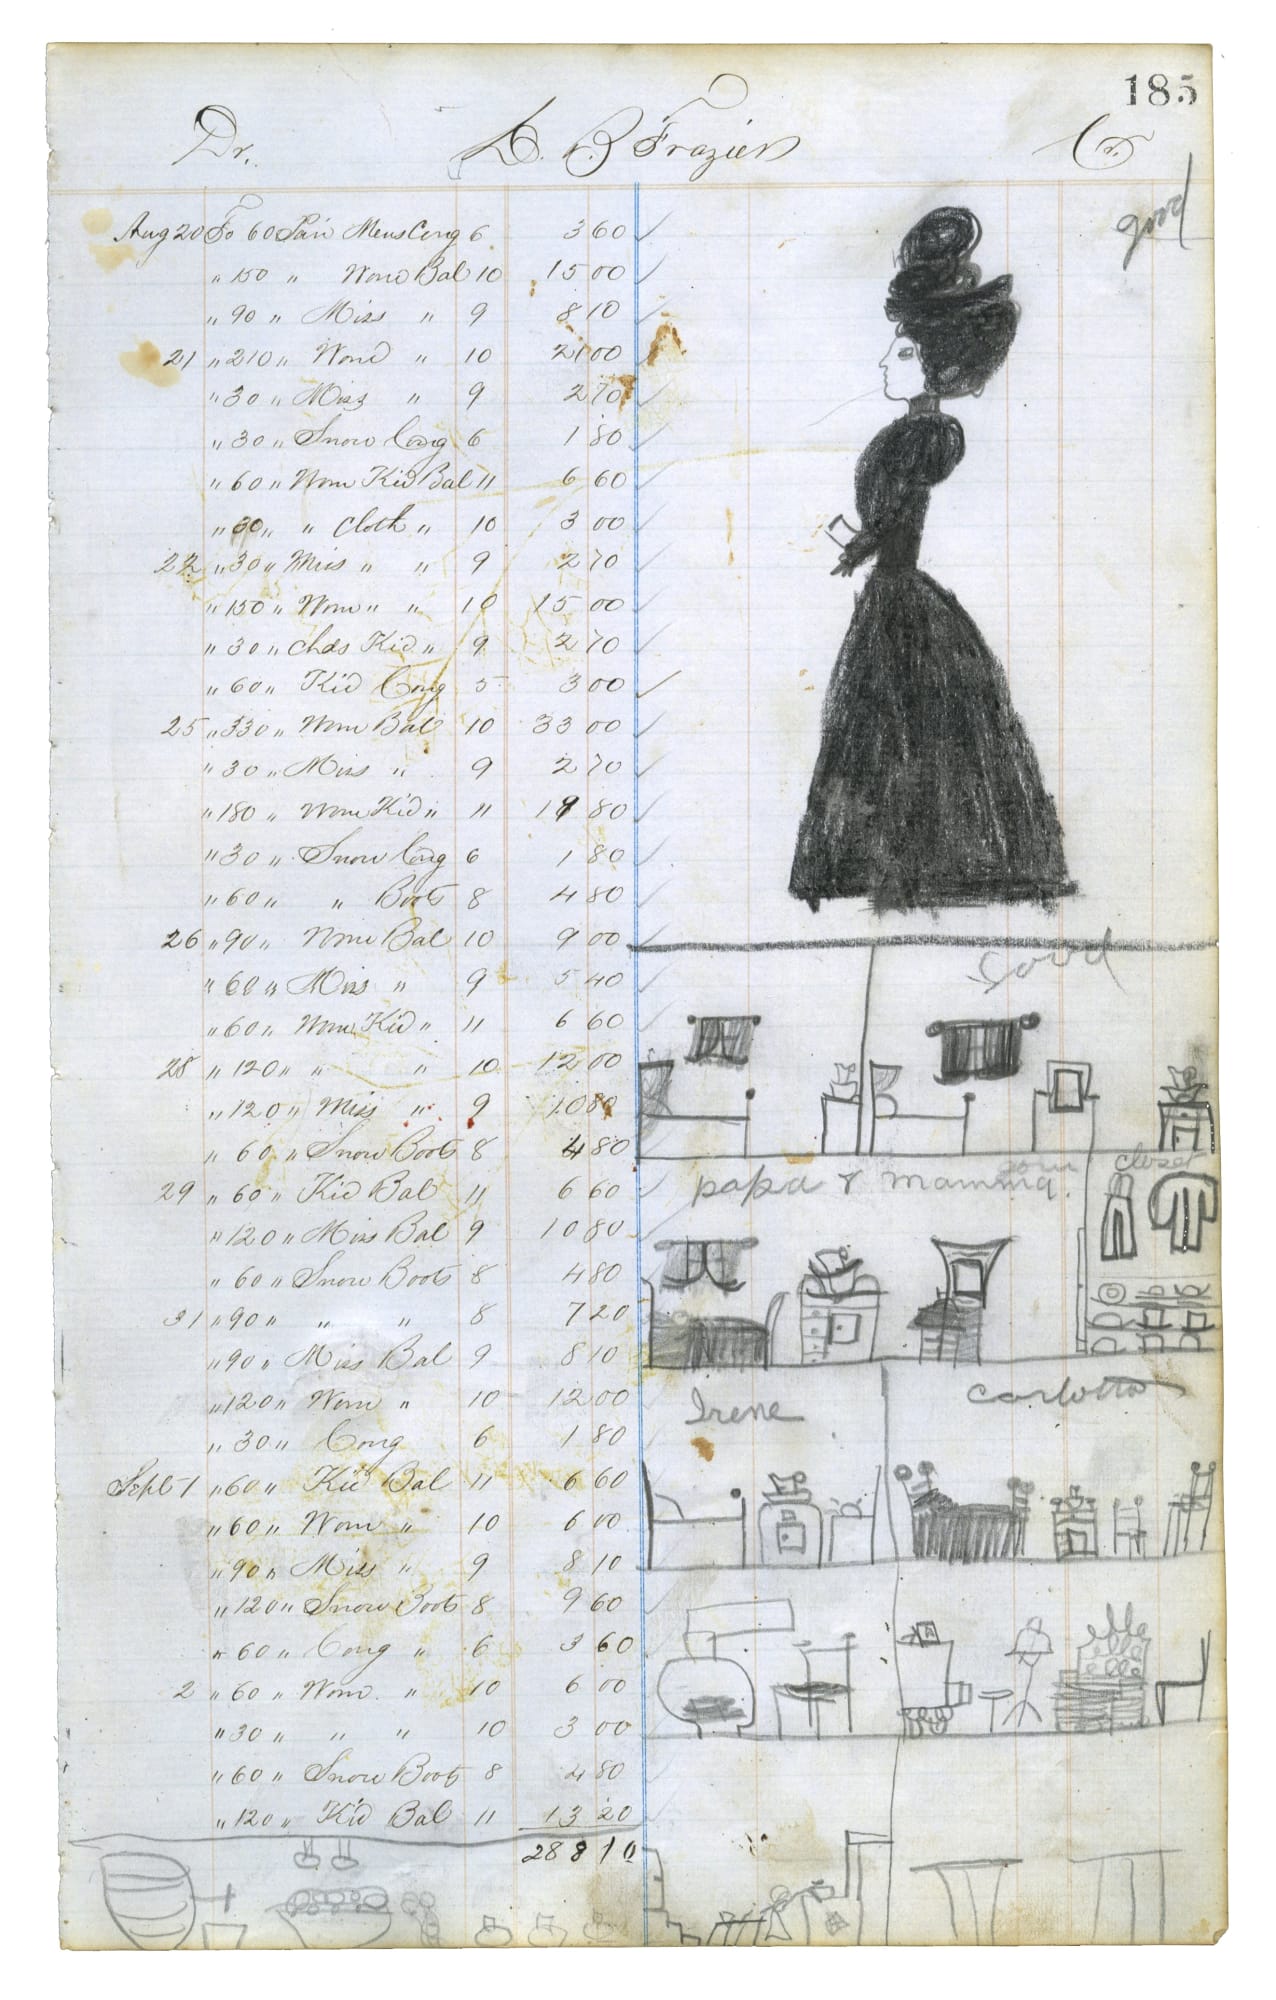 185
Dr. B. Frazier Cr.
good
Aug 20 To 60 Pair Mens Cong 6 3 60
" 150 " Wom Bal 10 15 00
" 90 " Miss " 9 8 10
21 " 210 " Wom " 10 21 00
" 30 " Miss " 9 2 70
" 30 " Snow Cong 6 1 80
" 60 " Wom Kid Bal 11 6 60
" 30 " " Cloth " 10 3 00
22 " 30 " Miss " " 9 2 70
" 150 " Wom " " 10 15 00
" 30 " Chds Kid " 9 2 70
" 60 " Kid Cong 5 3 00
25 " 330 " Wom Bal 10 33 00
" 30 " Miss " 9 2 70
" 180 " Wom Kid " 11 19 80
" 30 " Snow Cong 6 1 80
" 60 " " Boots 8 4 80
26 " 90 " Wom Bal 10 9 00
" 60 " Miss " 9 5 40
" 60 " Wom Kid " 11 6 60
28 " 120 " " " 10 12 00
" 120 " Miss " 9 10 80
" 60 " Snow Boots 8 4 80
29 " 60 " Kid Bal 11 6 60
" 120 " Miss Bal 9 10 80
" 60 " Snow Boots 8 4 80
31 " 90 " " " 8 7 20
" 90 " Miss Bal 9 8 10
" 120 " Wom " 10 12 00
" 30 " Cong 6 1 80
Sept 1 " 60 " Kid Bal 11 6 60
" 60 " Wom " 10 6 00
" 90 " Miss " 9 8 10
" 120 " Snow Boots 8 9 60
" 60 " Cong " 6 3 60
2 " 60 " Wom " 10 6 00
" 30 " " " 10 3 00
" 60 " Snow Boots 8 4 80
" 120 " Kid Bal 11 13 20
288 10
Good
closet
papa & mamma.
Irene
Carlotta